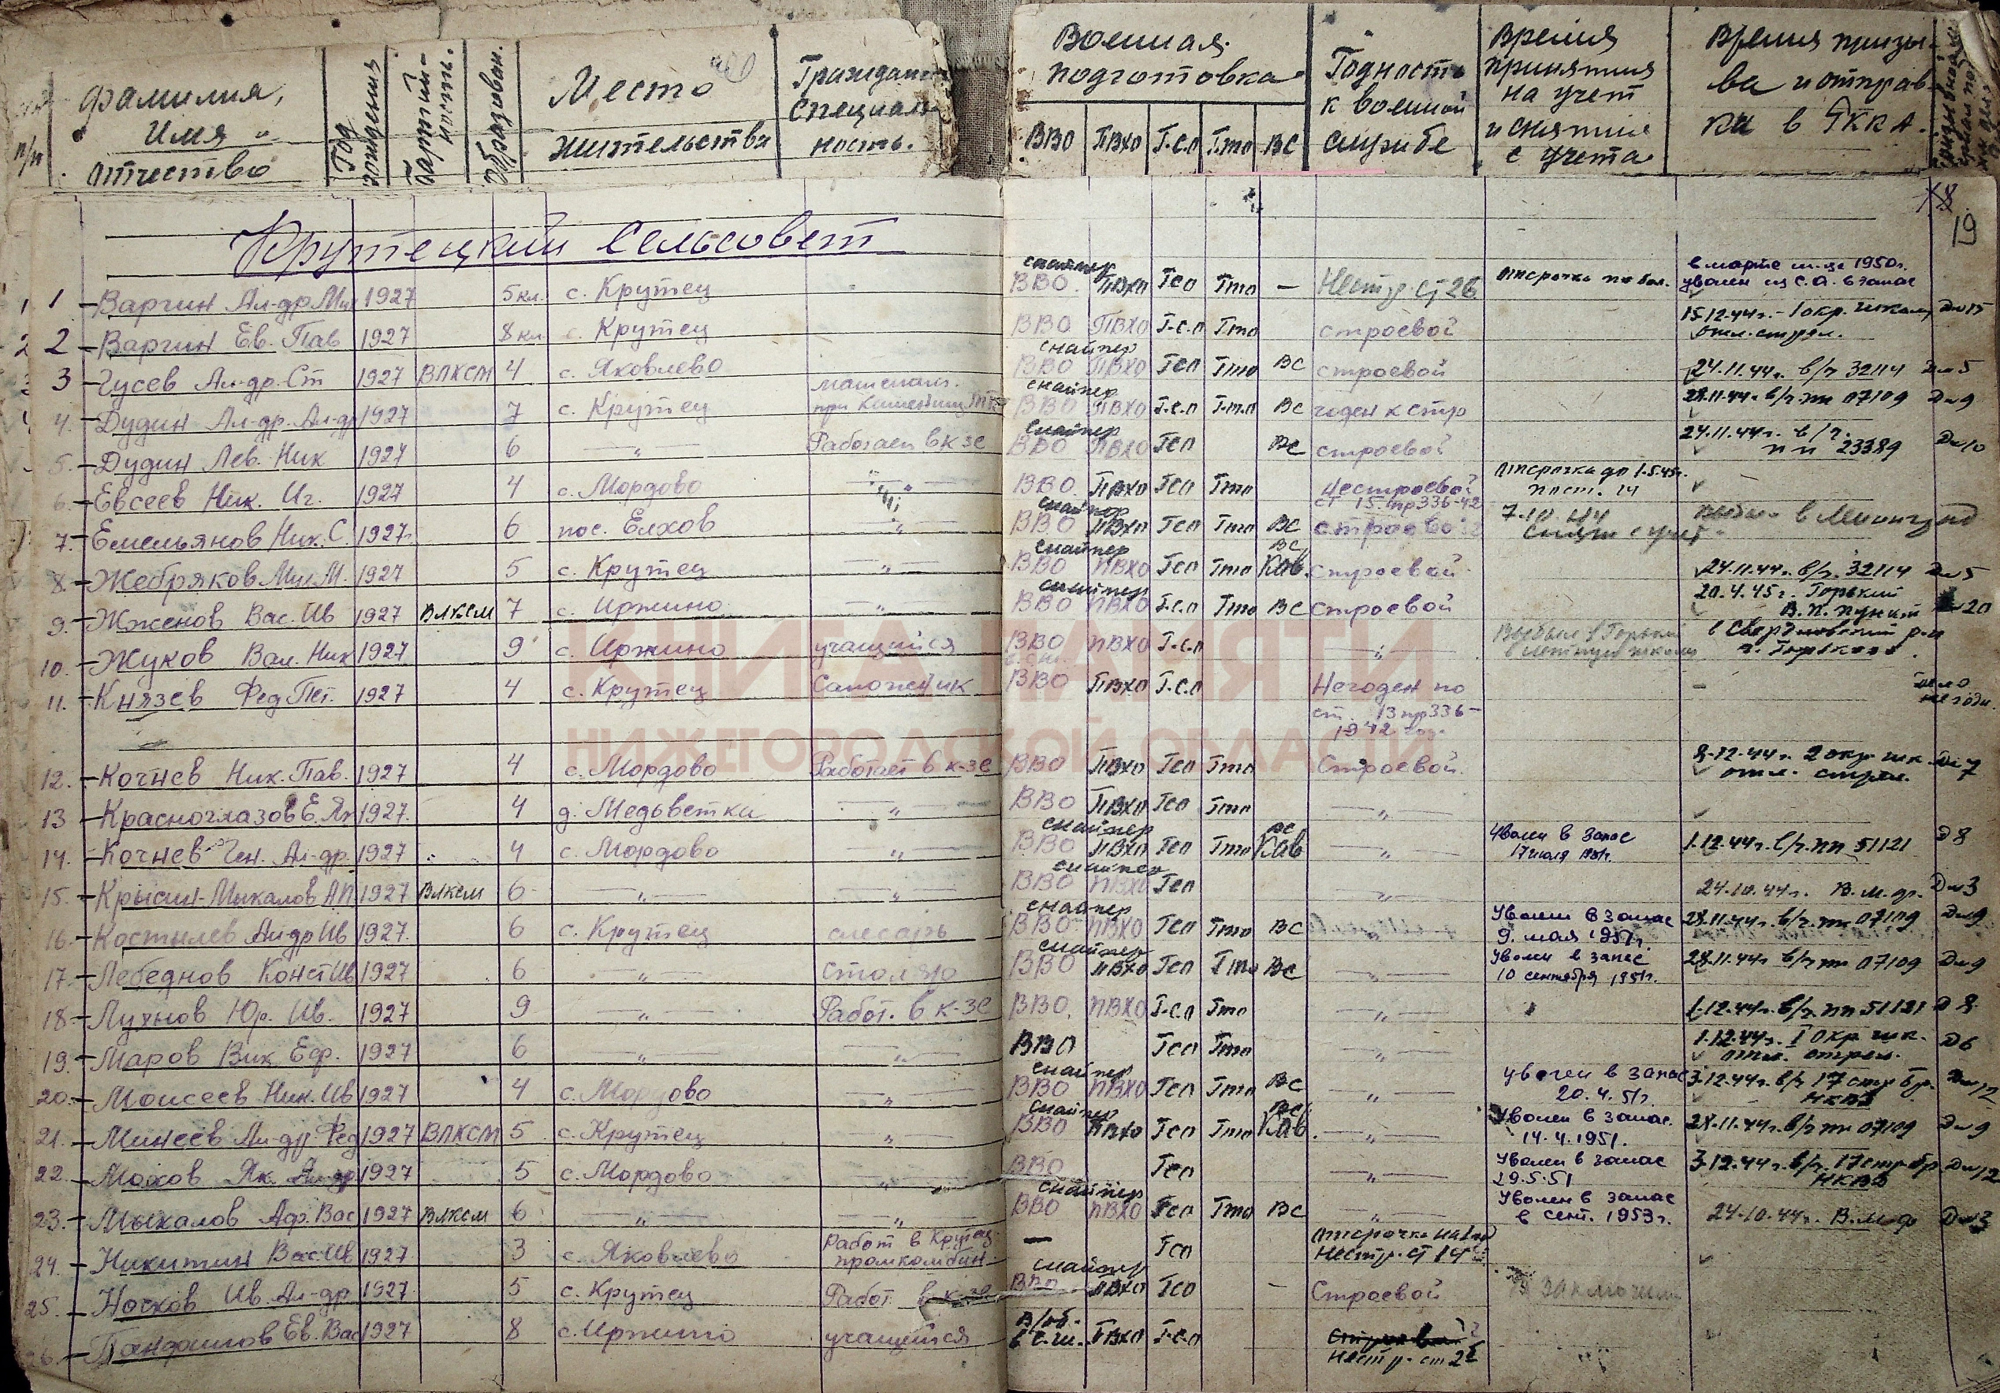 № п/п
Фамилия, Имя и отчество
Год рождения
Партийность.
Образован.
Место жительства
Граждан. специальность.
Военная подготовка
ВВО ПВХО Г.С.О Гто ВС
Годность к военной службе
Время принятия на учет и снятия с учета
Время призыва и отправки в РККА.
19
Крутецкий Сельсовет
1 Варгин Ал-др Мих 1927 5 кл. с. Крутец снайпер ВВО ПВХО Гсо Гто — Нестр. ст 26 Отсрочка по бол. в марте м-це 1950г. уволен из С.А. в запас
2 Варгин Ев. Пав 1927 8 кл с. Крутец ВВО ПВХО Г.С.О Гто строевой 15.12.44г. 1 окр. школ, отл. стрел. Дм 15
3 Гусев Ал-др. Ст 1927 ВЛКСМ 4 с. Яковлево снайпер ВВО ПВХО Гсо Гто ВС строевой 24.11.44г. в/ч 32114 Дм 5
4. Дудин Ал-др. Ал-др 1927 7 с. Крутец снайпер ВВО ПВХО Г.С.О Г.т.о ВС годен к стр 28.11.44г. в/ч пп 07109 Дм 9
5. Дудин Лев. Ник 1927 6 — „ — Работает в к-зе снайпер ВВО ПВХО Гсо ВС строевой 24.11.44г. в/ч. пп 23389 Дм 10
6. Евсеев Ник. Иг. 1927 4 с. Мордово — „ — ВВО ПВХО Гсо Гто Нестроевой ст 15. пр 336-42 Отсрочка до 1.5.45г. пост. 14
7. Емельянов Ник. С. 1927г. 6 пос. Елхов „ снайпер ВВО ПВХО Гсо Гто ВС строевой 7.10.44 Снят с учет выбыл в Ленинград
8. Жебряков Мих М. 1927 5 с. Крутец — „ — снайпер ВВО ПВХО Гсо Гто ВС Кав. строевой 24.11.44г. в/ч. 32114 Дм 5
9. Жженов Вас. Ив 1927 ВЛКСМ 7 с. Иржино — „ — снайпер ВВО ПВХО Г.С.О Гто ВС строевой 20.4.45г. Горький В.п. пункт Дм 20
10. Жуков Вал. Ник 1927 9 с. Иржино учащийся ВВО ПВХО Г.С.О — „ — Выбыл в Горький в летную школу в Свердловский р-н г. Горького.
11. Князев Фед Пет. 1927 4 с. Крутец Сапожник ВВО ПВХО Г.С.О Негоден по ст. 13 пр 336-1942 — дело негодн.
12. Кочнев Ник. Пав. 1927 4 с. Мордово Работает в к-зе ВВО ПВХО Гсо Гто Строевой. 8-12-44г. 2 окр шк. отл. стрел. Дм 7
13 Красноглазов Е. Як 1927. 4 д. Медьветка — „ — ВВО ПВХО Гсо Гто — „ —
14. Кочнев Ген. Ал-др. 1927 4 с. Мордово — „ — снайпер ВВО ПВХО Гсо Гто ВС Кав — „ — Уволен в запас 17 июля 1951г. 1.12.44г. в/ч. пп 51121 Д 8
15. Крысин-Мыкалов А П 1927 ВЛКСМ 6 — „ — — „ — снайпер ВВО ПВХО Гсо — „ — 24.10.44г. В.м.ф. Дм 3
16. Костылев Ал-др Ив 1927. 6 с. Крутец слесарь снайпер ВВО ПВХО Гсо Гто ВС — „ — Уволен в запас 9. мая 1951г. 28.11.44г. в/ч. пп 07109 Дм 9
17. Лебеднов Конст Ив 1927 6 — „ — столяр снайпер ВВО ПВХО Гсо Гто ВС — „ — Уволен в запас 10 сентября 1951г. 28.11.44г в/ч пп 07109 Дм 9
18. Лухнов Юр. Ив. 1927 9 — „ — Работ. в к-зе ВВО. ПВХО Г.С.О Гто — „ — 1.12.44г. в/ч. пп 51121 Д 8
19. Маров Вик. Еф. 1927 6 — „ — — „ — ВВО Гсо Гто — „ — 1.12.44г. I Окр шк. отл. стрел. Д 6
20. Моисеев Ник. Ив 1927 4 с. Мордово „ снайпер ВВО ПВХО Гсо Гто ВС — „ — уволен в запас 20.4.51г. 3.12.44г. в/ч 17 стр бр. НКВД Дм 12
21. Минеев Ал-др Фед 1927 ВЛКСМ 5 с. Крутец — „ — снайпер ВВО ПВХО Гсо Гто ВС Кав. — „ — Уволен в запас. 14.4.1951. 28.11.44г. в/ч пп 07109 Дм 9
22. Мохов Як. Ал-др 1927 5 с. Мордово — „ — ВВО Гсо — „ — Уволен в запас 29.5.51 3.12.44г. в/ч. 17 стр бр НКВД Дм 12
23. Мыкалов Аф. Вас 1927 ВЛКСМ 6 — „ — — „ — снайпер ВВО ПВХО Гсо Гто ВС — „ — Уволен в запас в сент. 1953г. 24.10.44г. В.м.ф Дм 3
24. Никитин Вас. Ив 1927 3 с. Яковлево Работ в Крутец. промкомбин. — Гсо Отсрочка на 1 год Нестр. ст 14
25. Носков Ив. Ал-др 1927 5 с. Крутец Работ в к-зе снайпер ВВО ПВХО Гсо — Строевой В заключении
26. Пандашов Ев. Вас 1927 8 с. Иржино учащийся В/об. в с.ш. ПВХО Г.С.О Строевой Нестр. ст 2б
КНИГА ПАМЯТИ
НИЖЕГОРОДСКОЙ ОБЛАСТИ